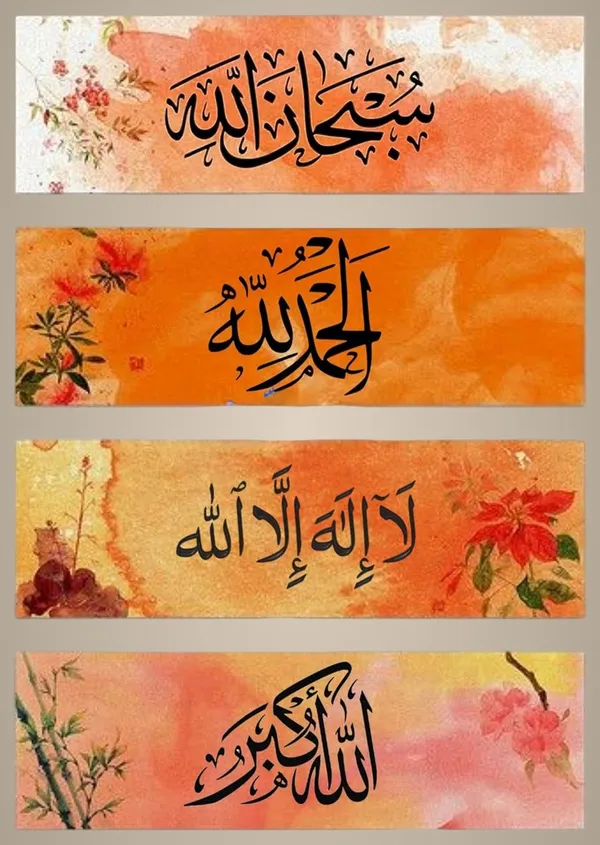 سُبْحَانَ اللَّه
الْحَمْدُ لِلَّهِ
لَآ إِلَٰهَ إِلَّا ٱللَّه
اللَّهُ أَكْبَرُ